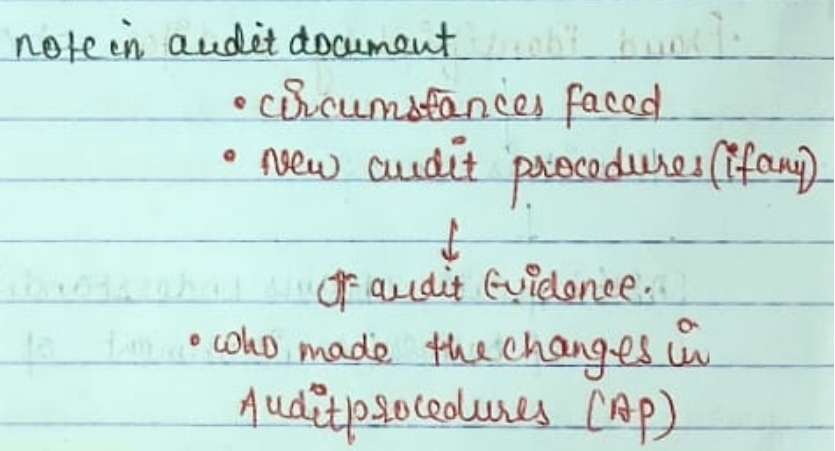 note in audit document
• circumstances faced
• New audit procedures (if any)
↓
of audit Evidence.
• who made the changes in
Audit procedures (AP)